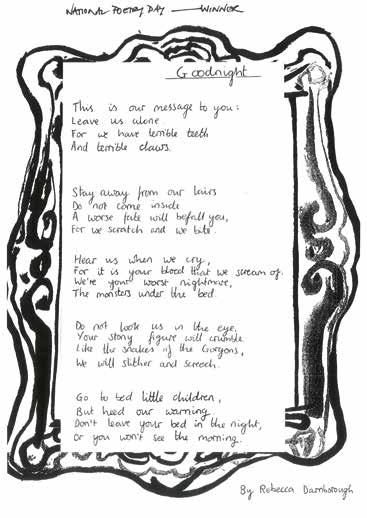 NATIONAL POETRY DAY — WINNER
Goodnight
This is our message to you:
Leave us alone.
For we have terrible teeth
And terrible claws.
Stay away from our lairs
Do not come inside
A worse fate will befall you,
For we scratch and we bite.
Hear us when we cry,
For it is your blood that we scream of.
We're your worst nightmare,
The monsters under the bed.
Do not look us in the eye,
Your stony figure will crumble
Like the snakes of the Gorgons,
We will slither and screech.
Go to bed little children,
But heed our warning.
Don't leave your bed in the night,
Or you won't see the morning.
By Rebecca Darnborough